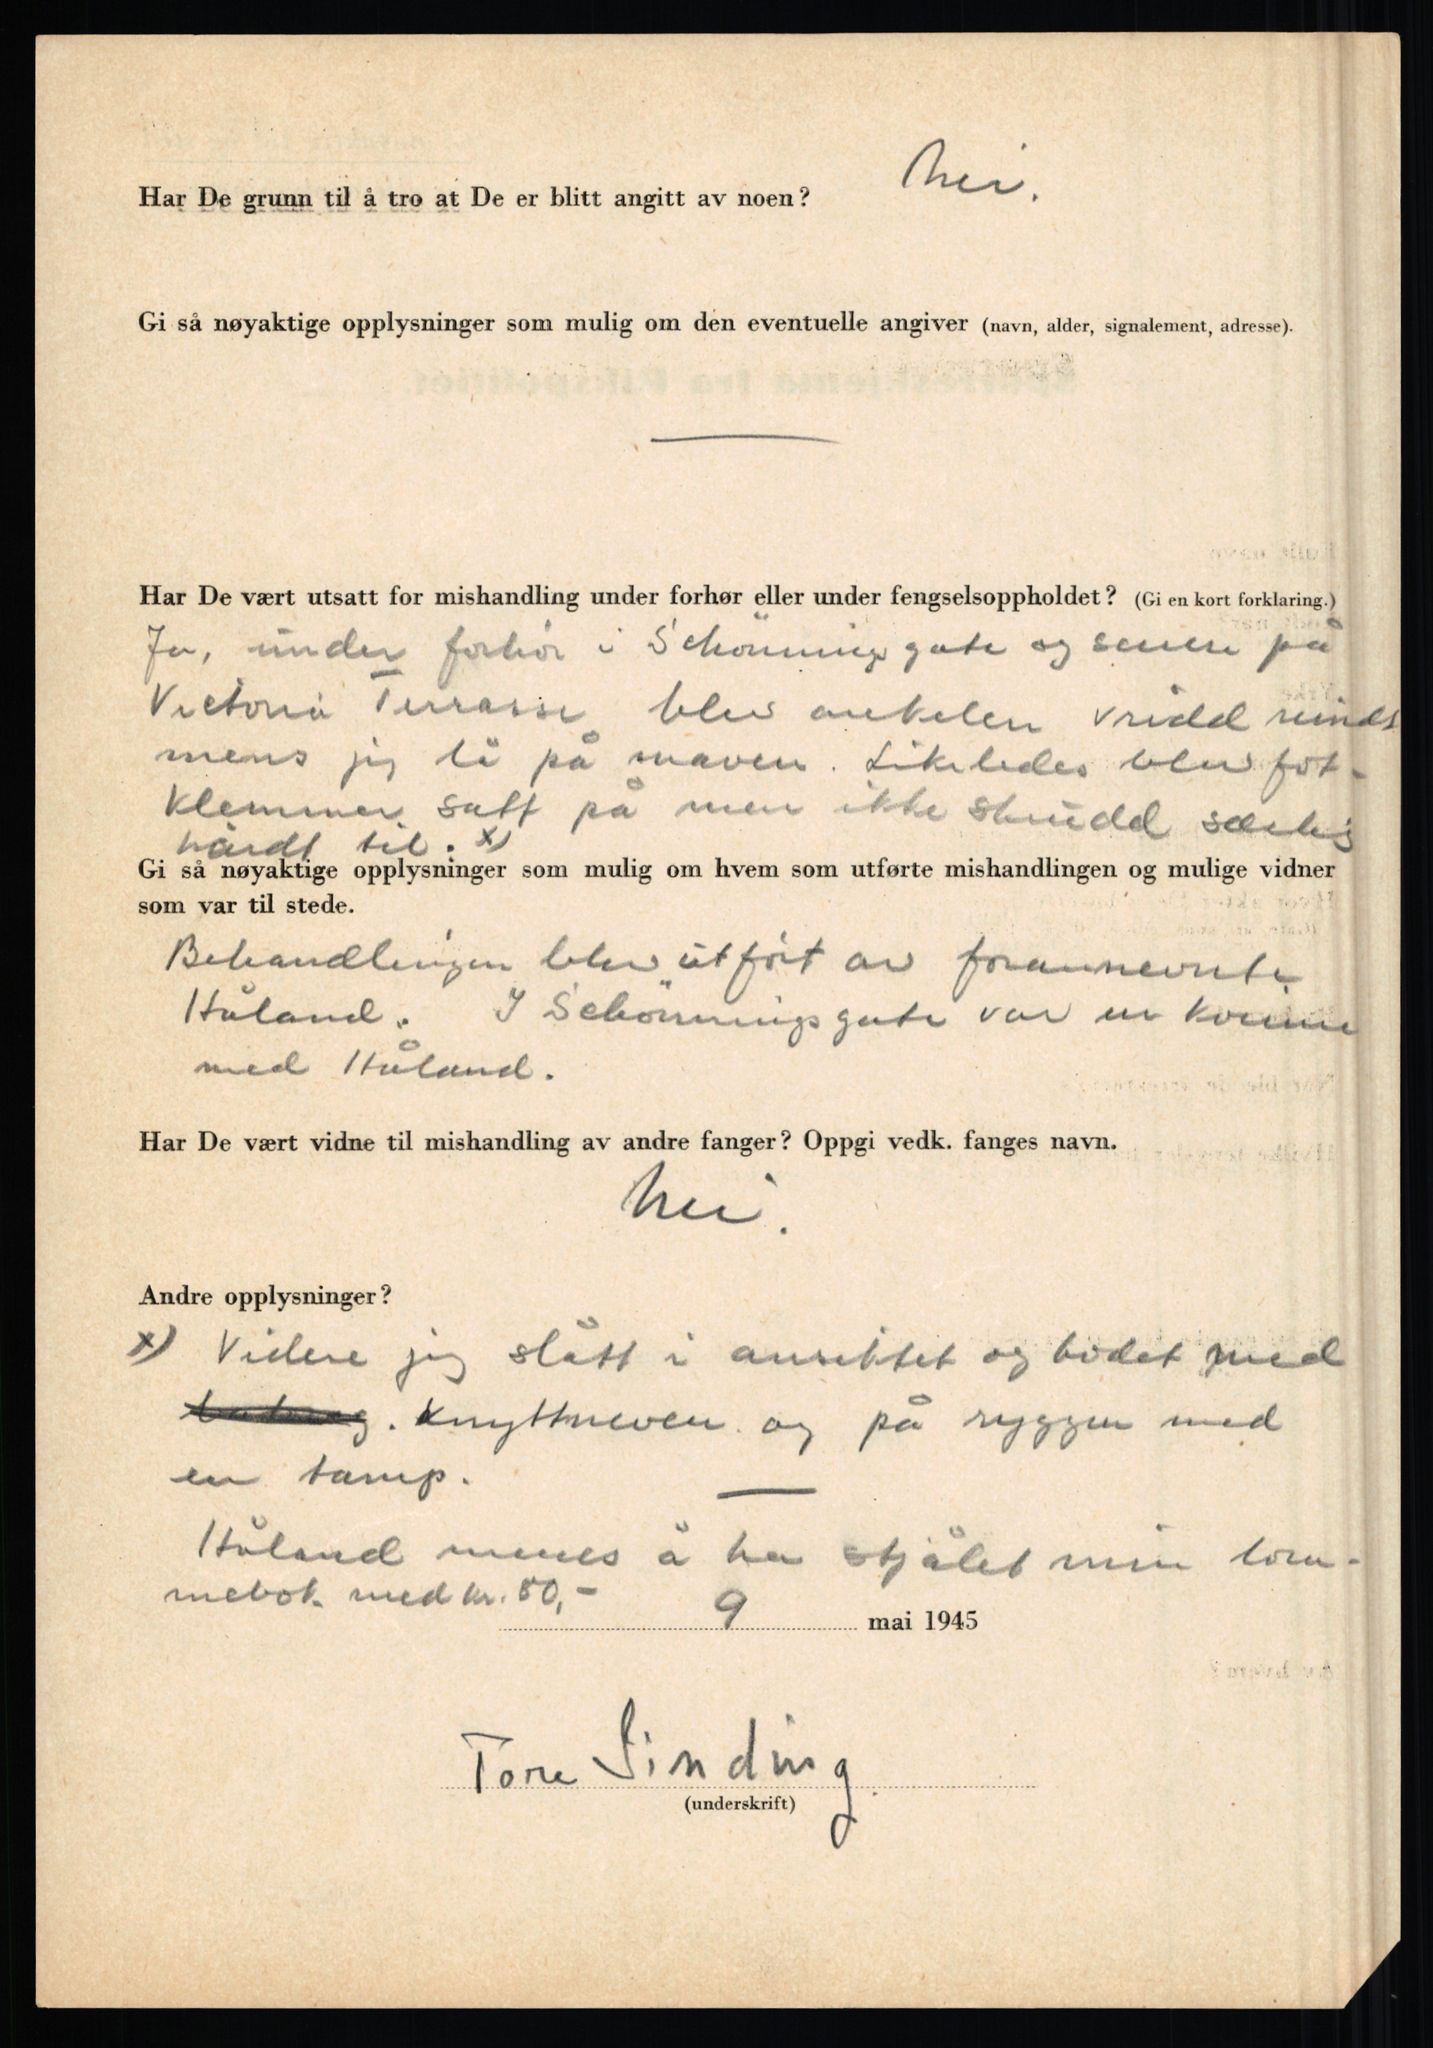 nei.
Har De grunn til å tro at De er blitt angitt av noen?
Gi så nøyaktige opplysninger som mulig om den eventuelle angiver (navn, alder, signalement, adresse).
Har De vært utsatt for mishandling under forhør eller under fengselsoppholdet? (Gi en kort forklaring.)
Ja, under forhör i Schönningsgate og senere på
Victoria Terrasse blev ankelen vridd rundt
mens jeg lå på maven. Likeledes blev fot-
klemmer satt på men ikke skrudd særlig
hårdt til. x)
Gi så nøyaktige opplysninger som mulig om hvem som utførte mishandlingen og mulige vidner
som var til stede.
Behandlingen blev utfört av forannevnte
Håland. I Schönningsgate var en kvinne
med Håland.
Har De vært vidne til mishandling av andre fanger? Oppgi vedk. fanges navn.
Nei.
Andre opplysninger?
x) Videre jeg slått i ansiktet og hodet med
knyttneven og på ryggen med
en tamp.
Håland menes å ha stjålet min lom-
mebok med kr. 50,-
9 mai 1945
Tore Sinding.
(underskrift)